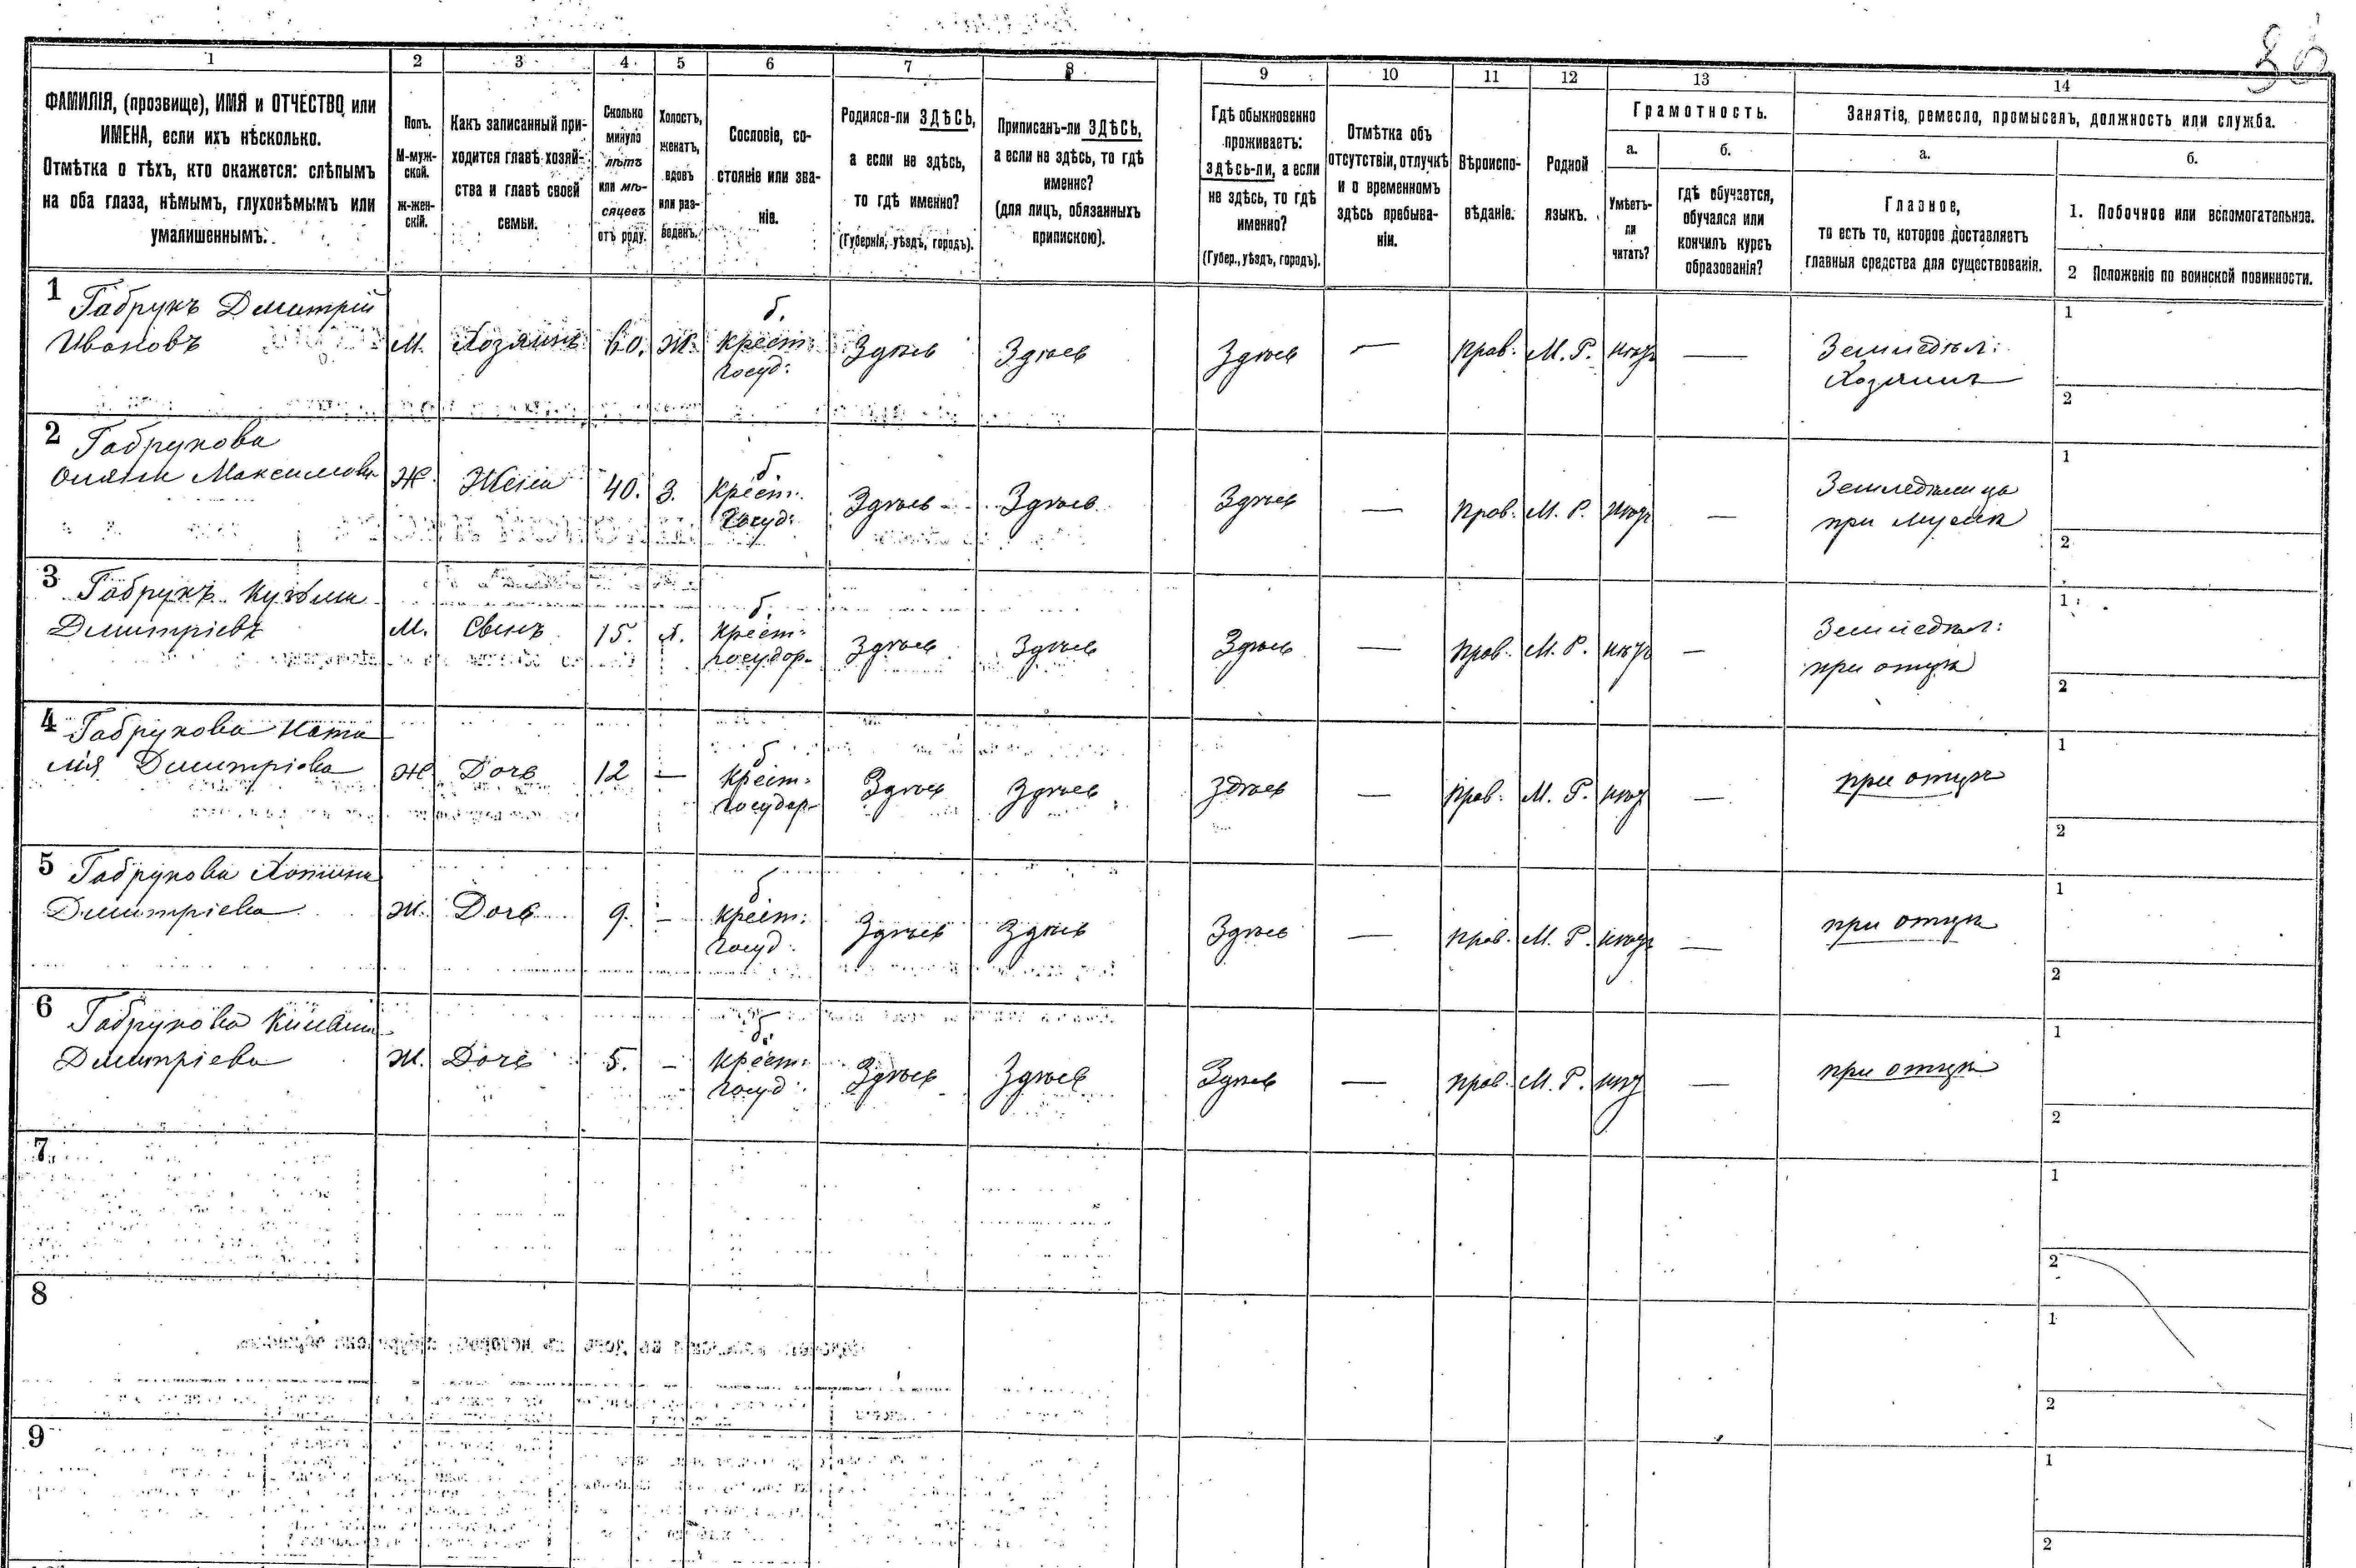 36
1 2 3 4 5 6 7 8 9 10 11 12 13 14
ФАМИЛІЯ, (прозвище), ИМЯ и ОТЧЕСТВО или
ИМЕНА, если ихъ нѣсколько.
Отмѣтка о тѣхъ, кто окажется: слѣпымъ
на оба глаза, нѣмымъ, глухонѣмымъ или
умалишеннымъ.
Полъ.
М-муж-
ской.
ж-жен-
скій.
Какъ записанный при-
ходится главѣ хозяй-
ства и главѣ своей
семьи.
Сколько
минуло
лѣтъ
или мѣ-
сяцевъ
отъ роду.
Холостъ,
женатъ,
вдовъ
или раз-
веденъ.
Сословіе, со-
стояніе или зва-
ніе.
Родился-ли ЗДѢСЬ,
а если не здѣсь,
то гдѣ именно?
(Губернія, уѣздъ, городъ).
Приписанъ-ли ЗДѢСЬ,
а если не здѣсь, то гдѣ
именно?
(для лицъ, обязанныхъ
припискою).
Гдѣ обыкновенно
проживаетъ:
здѣсь-ли, а если
не здѣсь, то гдѣ
именно?
(Губер., уѣздъ, городъ).
Отмѣтка объ
отсутствіи, отлучкѣ
и о временномъ
здѣсь пребыва-
ніи.
Вѣроиспо-
вѣданіе.
Родной
языкъ.
Грамотность.
а.
Умѣетъ-
ли
читать?
б.
гдѣ обучается,
обучался или
кончилъ курсъ
образованія?
Занятіе, ремесло, промыселъ, должность или служба.
а.
Главное,
то есть то, которое доставляетъ
главныя средства для существованія.
б.
1. Побочное или вспомогательное.
2 Положеніе по воинской повинности.
1 Габрукъ Дмитрій
Ивановъ М. Хозяинъ 60. Ж. б. крест: госуд: Здѣсь Здѣсь Здѣсь — Прав. М. Р. нѣтъ — Земледѣл: Хозяинъ 1 2
2 Габрукова
Максимова Ж. Жена 40. З. б. крест: госуд: Здѣсь Здѣсь Здѣсь — Прав. М. Р. нѣтъ — Земледѣлица при мужѣ 1 2
3 Габрукъ Кузьма
Дмитріевъ М. Сынъ 15. Х. б. крест: государ- Здѣсь Здѣсь Здѣсь — Прав. М. Р. нѣтъ — Земледѣл: при отцѣ 1 2
4 Габрукова Ната
лія Дмитріева Ж Дочь 12 — б. крест: государ- Здѣсь Здѣсь Здѣсь — Прав. М. Р. нѣтъ — при отцѣ 1 2
5 Габрукова
Дмитріева Ж. Дочь 9. — б. крест: госуд: Здѣсь Здѣсь Здѣсь — Прав. М. Р. нѣтъ — при отцѣ 1 2
6 Габрукова
Дмитріева Ж. Дочь 5. — б. крест: госуд: Здѣсь Здѣсь Здѣсь — Прав. М. Р. нѣтъ — при отцѣ 1 2
7 1 2
8 1 2
9 1 2